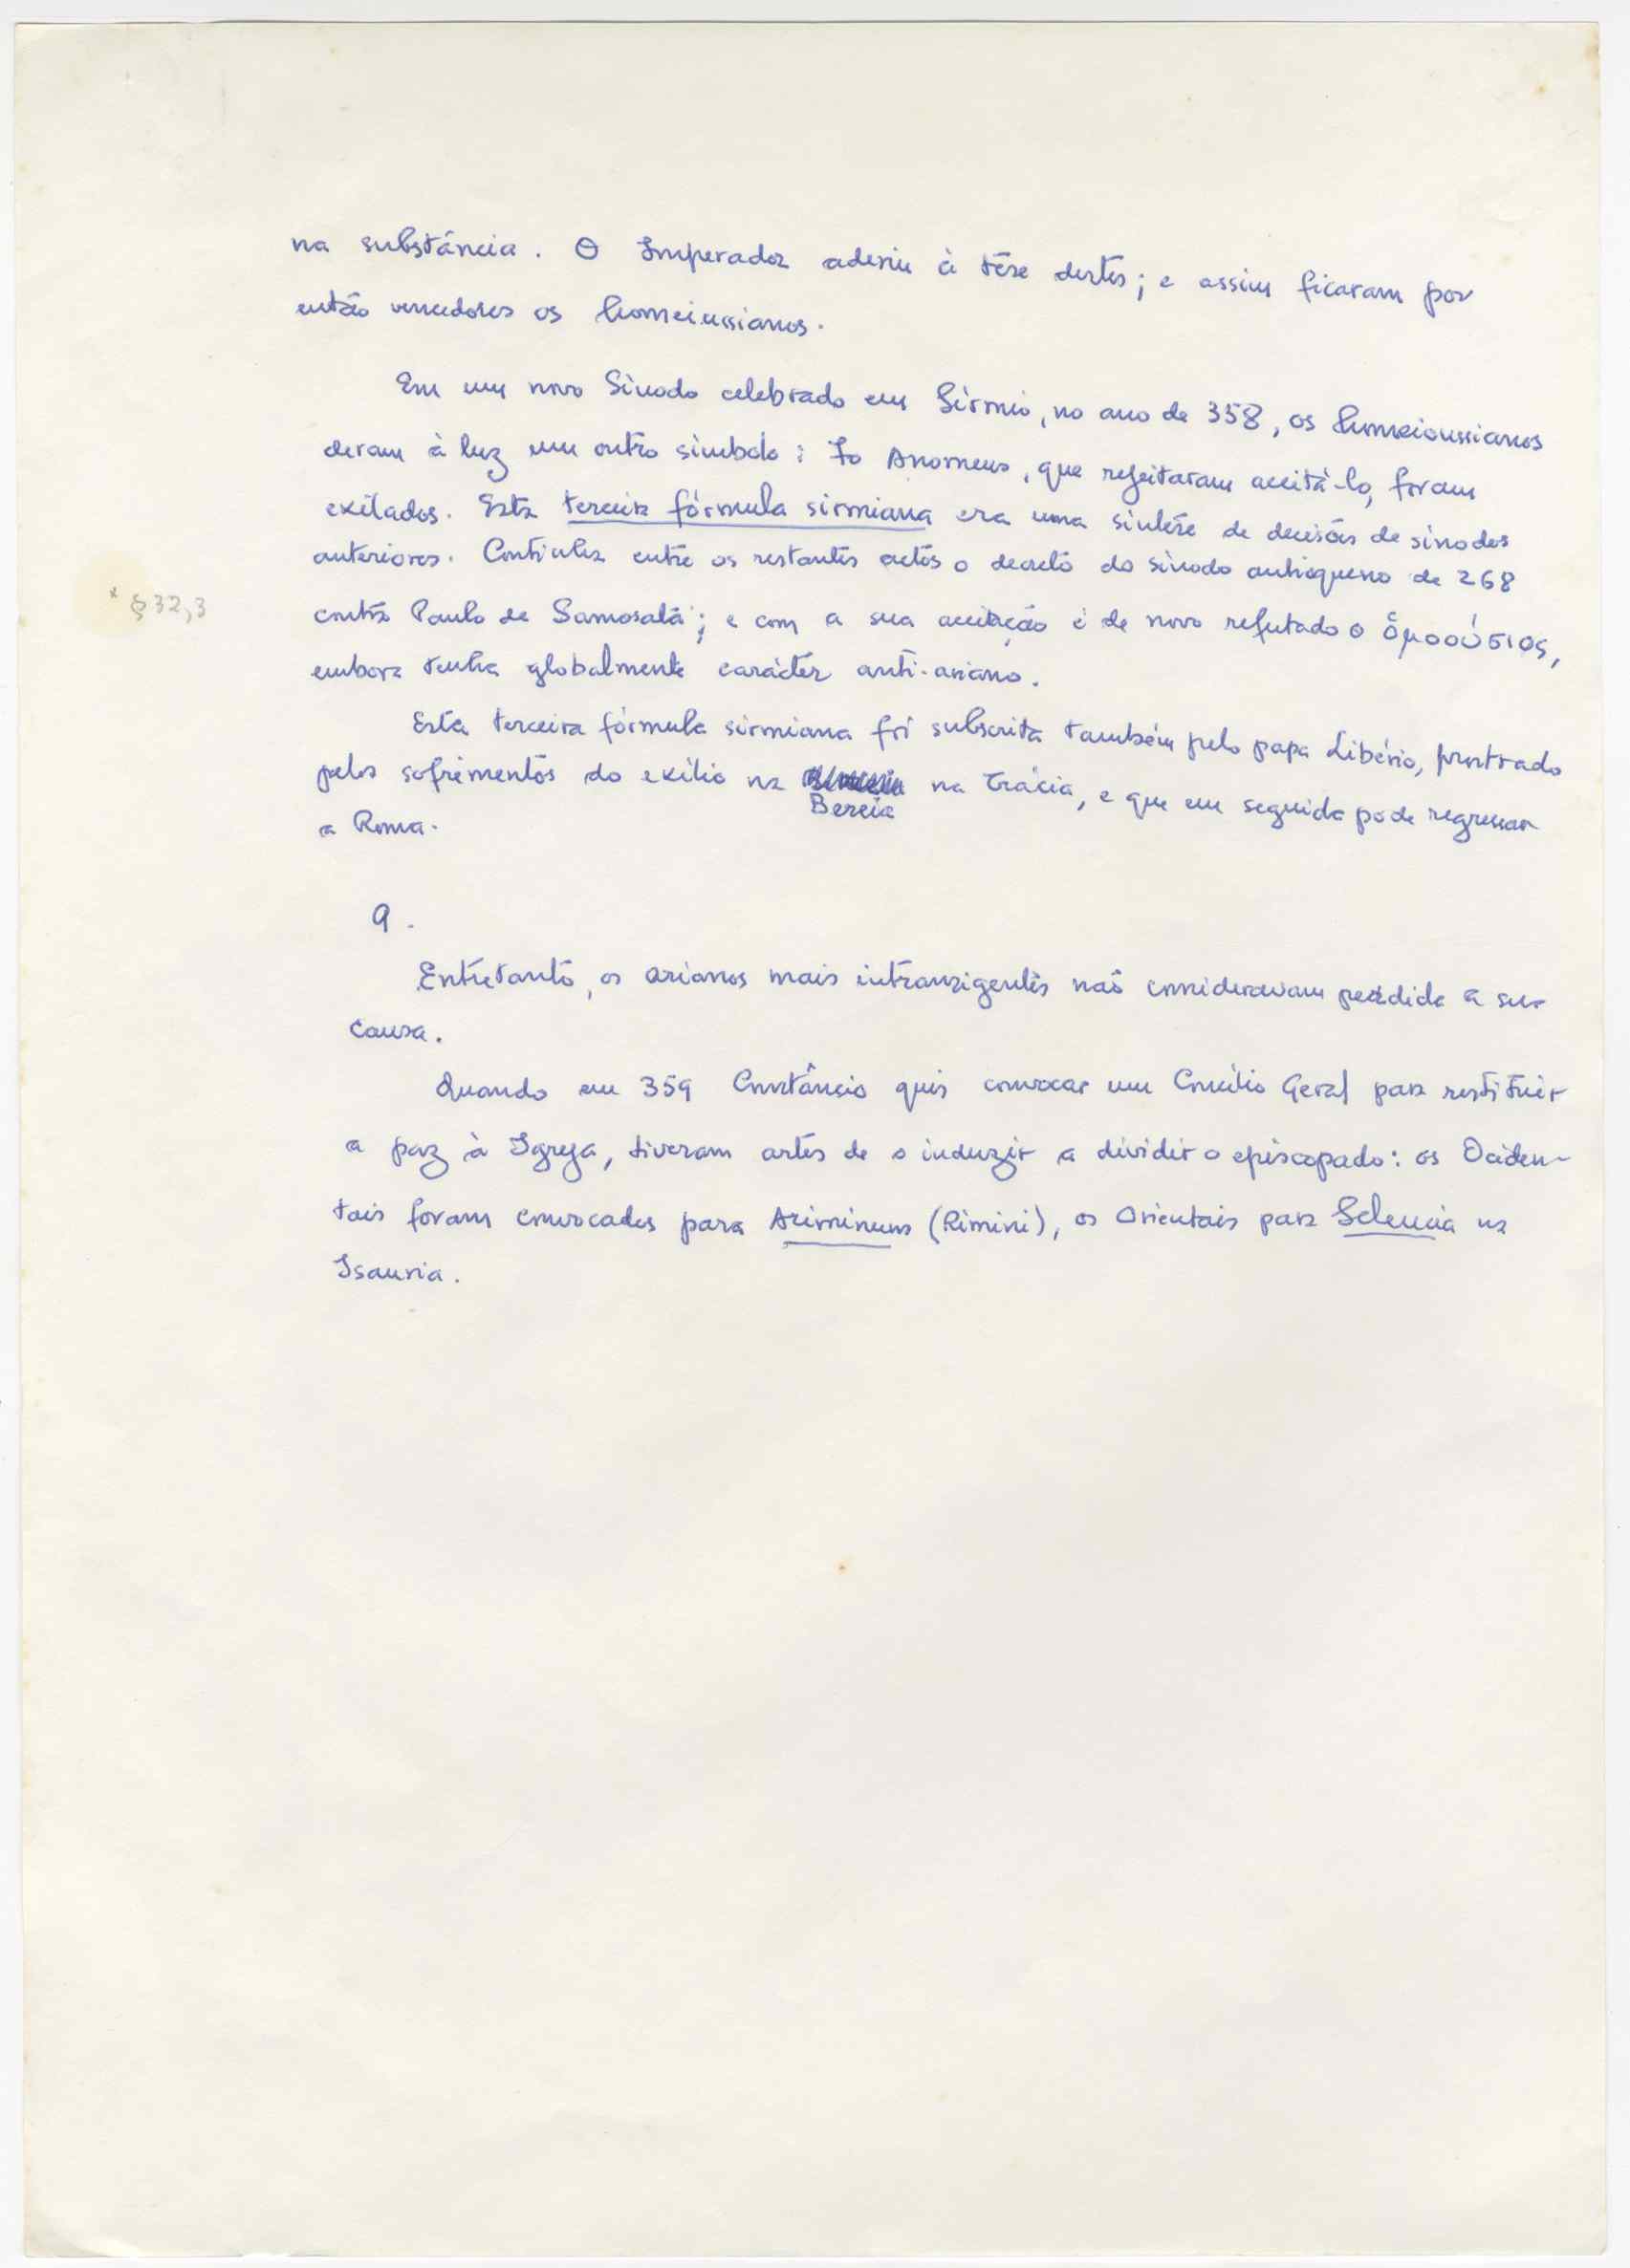 na substância. O Imperador aderiu à tése destes; e assim ficaram por
então vencedores os homeiussianos.
Em um novo Sínodo celebrado em Sírmio, no ano de 358, os homeioussianos
deram à luz um outro símbolo: Anomeus, que rejeitaram aceitá-lo, foram
exilados. Esta terceira fórmula sirmiana era uma síntese de decisões de sínodos
anteriores. Continha entre os restantes actos o decreto do sínodo antioqueno de 268
* § 32,3
contra Paulo de Samosata; e com a sua aceitação é de novo refutado o ὁμοούσιος,
embora tenha globalmente carácter anti-ariano.
Esta terceira fórmula sirmiana foi subscrita também pelo papa Libério, prostrado
pelos sofrimentos do exílio na Bereia na Trácia, e que em seguida pode regressar
a Roma.
9.
Entretanto, os arianos mais intransigentes não consideravam perdida a sua
causa.
Quando em 359 Constâncio quis convocar um Concílio Geral para restituir
a paz à Igreja, tiveram artes de o induzir a dividir o episcopado: os Ociden-
tais foram convocados para Ariminum (Rimini), os Orientais para Seleucia na
Isauria.